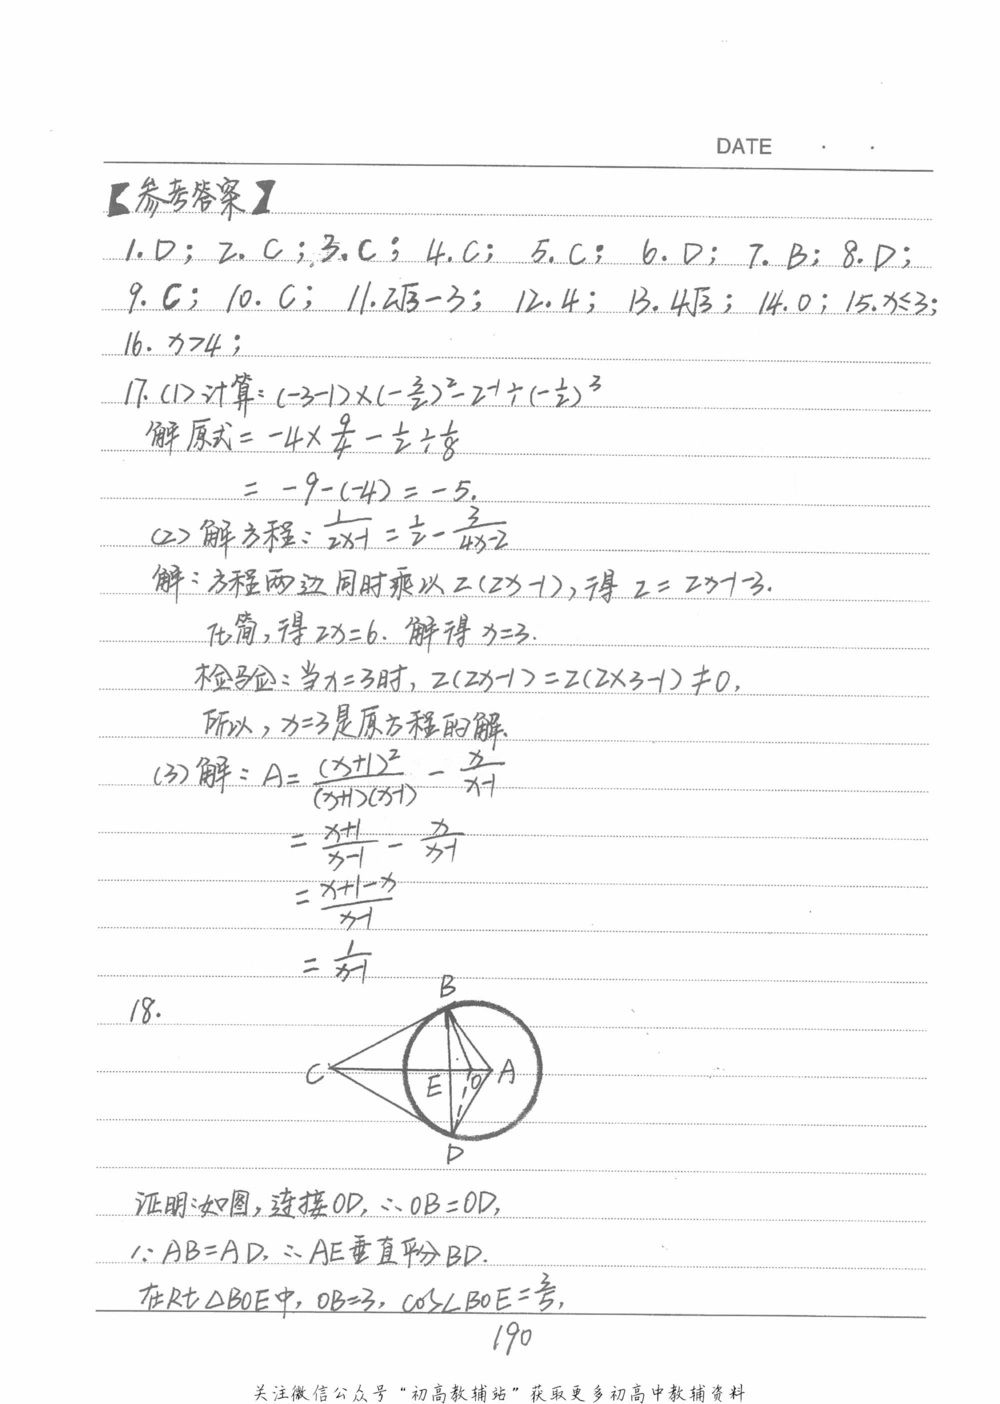 DATE · ·
【参考答案】
1. D； 2. C；3. C； 4. C； 5. C； 6. D； 7. B；8. D；
9. C； 10. C； 11. 2√3-3； 12. 4； 13. 4√3； 14. 0；15. x≤3；
16. x>4；
17. (1) 计算：(-3-1)×(-3/2)²-2⁻¹÷(-1/2)³
解 原式= -4×9/4 - 1/2÷1/8
= -9-(-4) = -5.
(2) 解方程：1/(2x-1) = 1/2 - 3/(4x-2)
解：方程两边同时乘以2(2x-1)，得 2=2x-1-3.
化简，得2x=6. 解得x=3.
检验：当x=3时，2(2x-1)=2(2×3-1)≠0，
所以，x=3是原方程的解.
(3) 解：A= (x+1)²/(x+1)(x-1) - x/(x-1)
= (x+1)/(x-1) - x/(x-1)
= (x+1-x)/(x-1)
= 1/(x-1)
18.
B
C E O A
D
证明：如图，连接OD，∴OB=OD，
∵AB=AD，∴AE垂直平分BD.
在Rt△BOE中，OB=3，cos∠BOE=3/5，
190
关注微信公众号“初高教辅站”获取更多初高中教辅资料